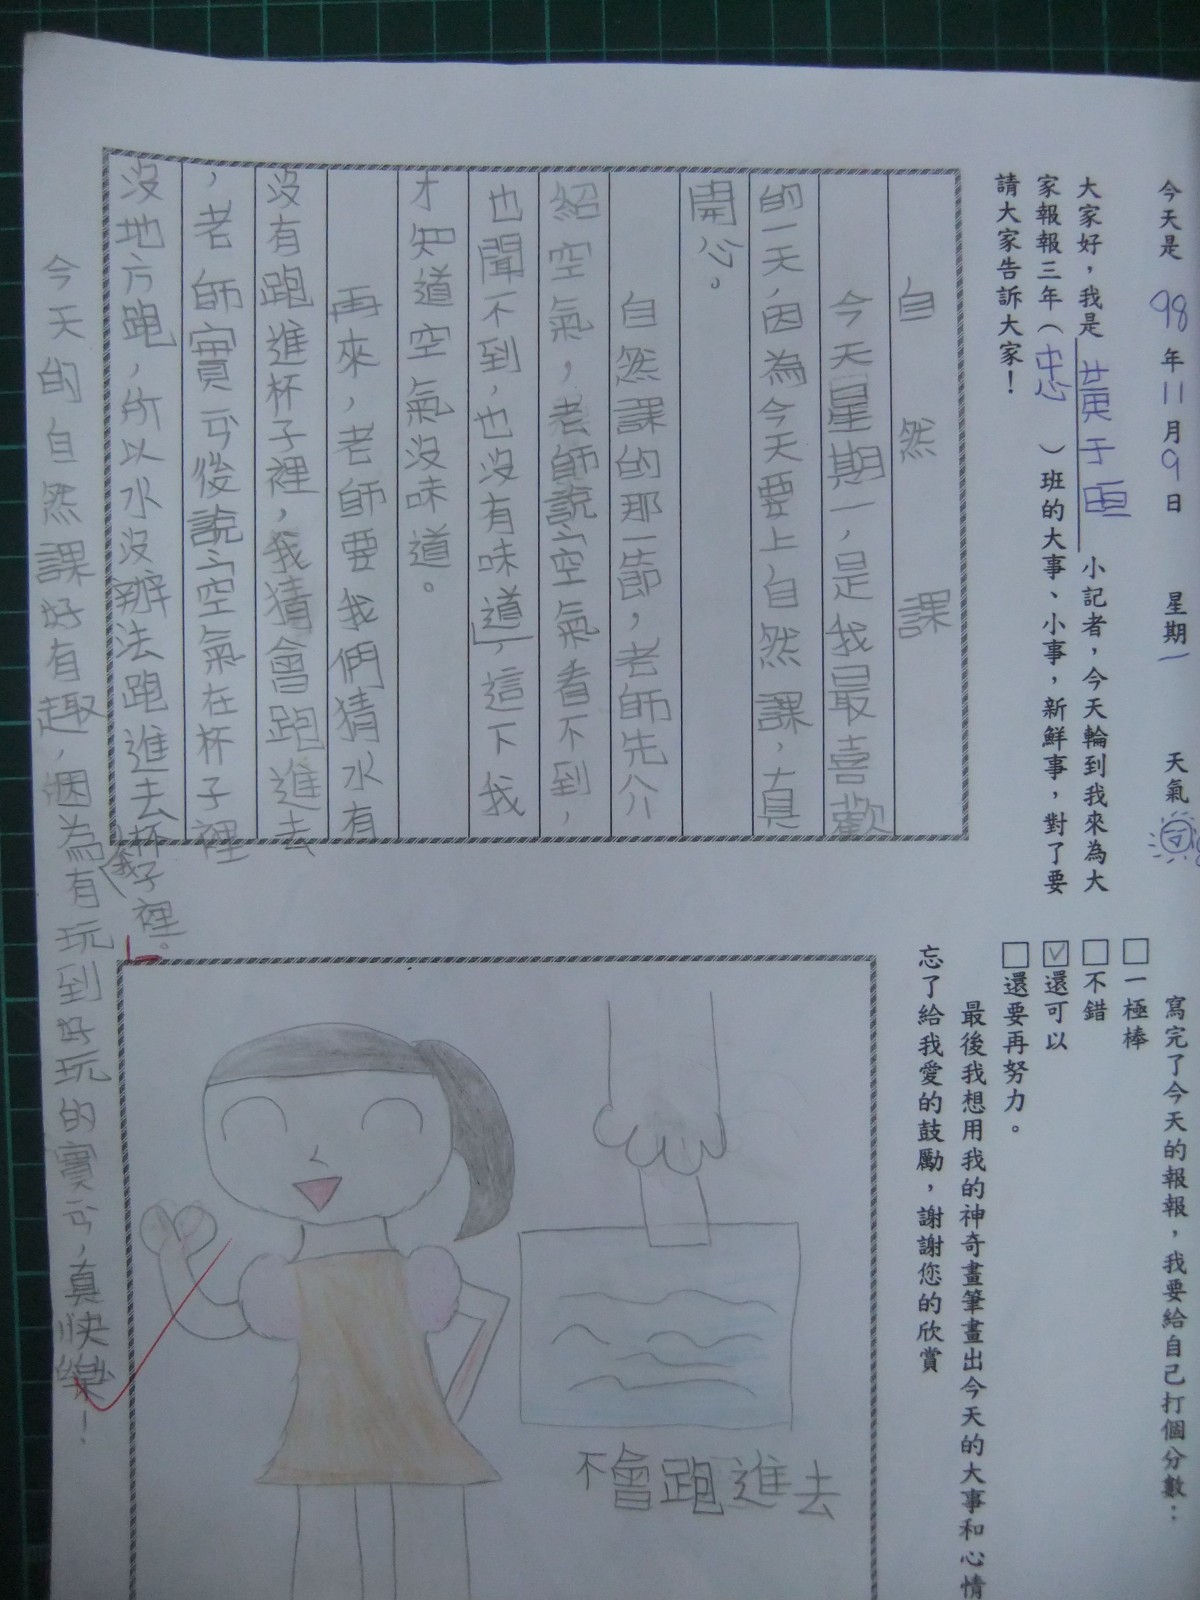 今天是 98 年 11 月 9 日 星期一 天氣
大家好，我是 黃于 小記者，今天輪到我來為大
家報報三年（忠）班的大事、小事，新鮮事，對了要
請大家告訴大家！
自然課
今天星期一，是我最喜歡
的一天，因為今天要上自然課，真
開心。
自然課的那一節，老師先介
紹空氣，老師說：「空氣看不到，
也聞不到，也沒有味道」，這下我
才知道空氣沒味道。
再來，老師要我們猜水有
沒有跑進杯子裡，我猜會跑進去
，老師實可後說：「空氣在杯子裡
沒地方跑，所以水沒辦法跑進去杯子裡。
今天的自然課好有趣，因為我有玩到好玩的實可，真快樂！
寫完了今天的報報，我要給自己打個分數：
□一極棒
□不錯
☑還可以
□還要再努力。
最後我想用我的神奇畫筆畫出今天的大事和心情
忘了給我愛的鼓勵，謝謝您的欣賞
不會跑進去